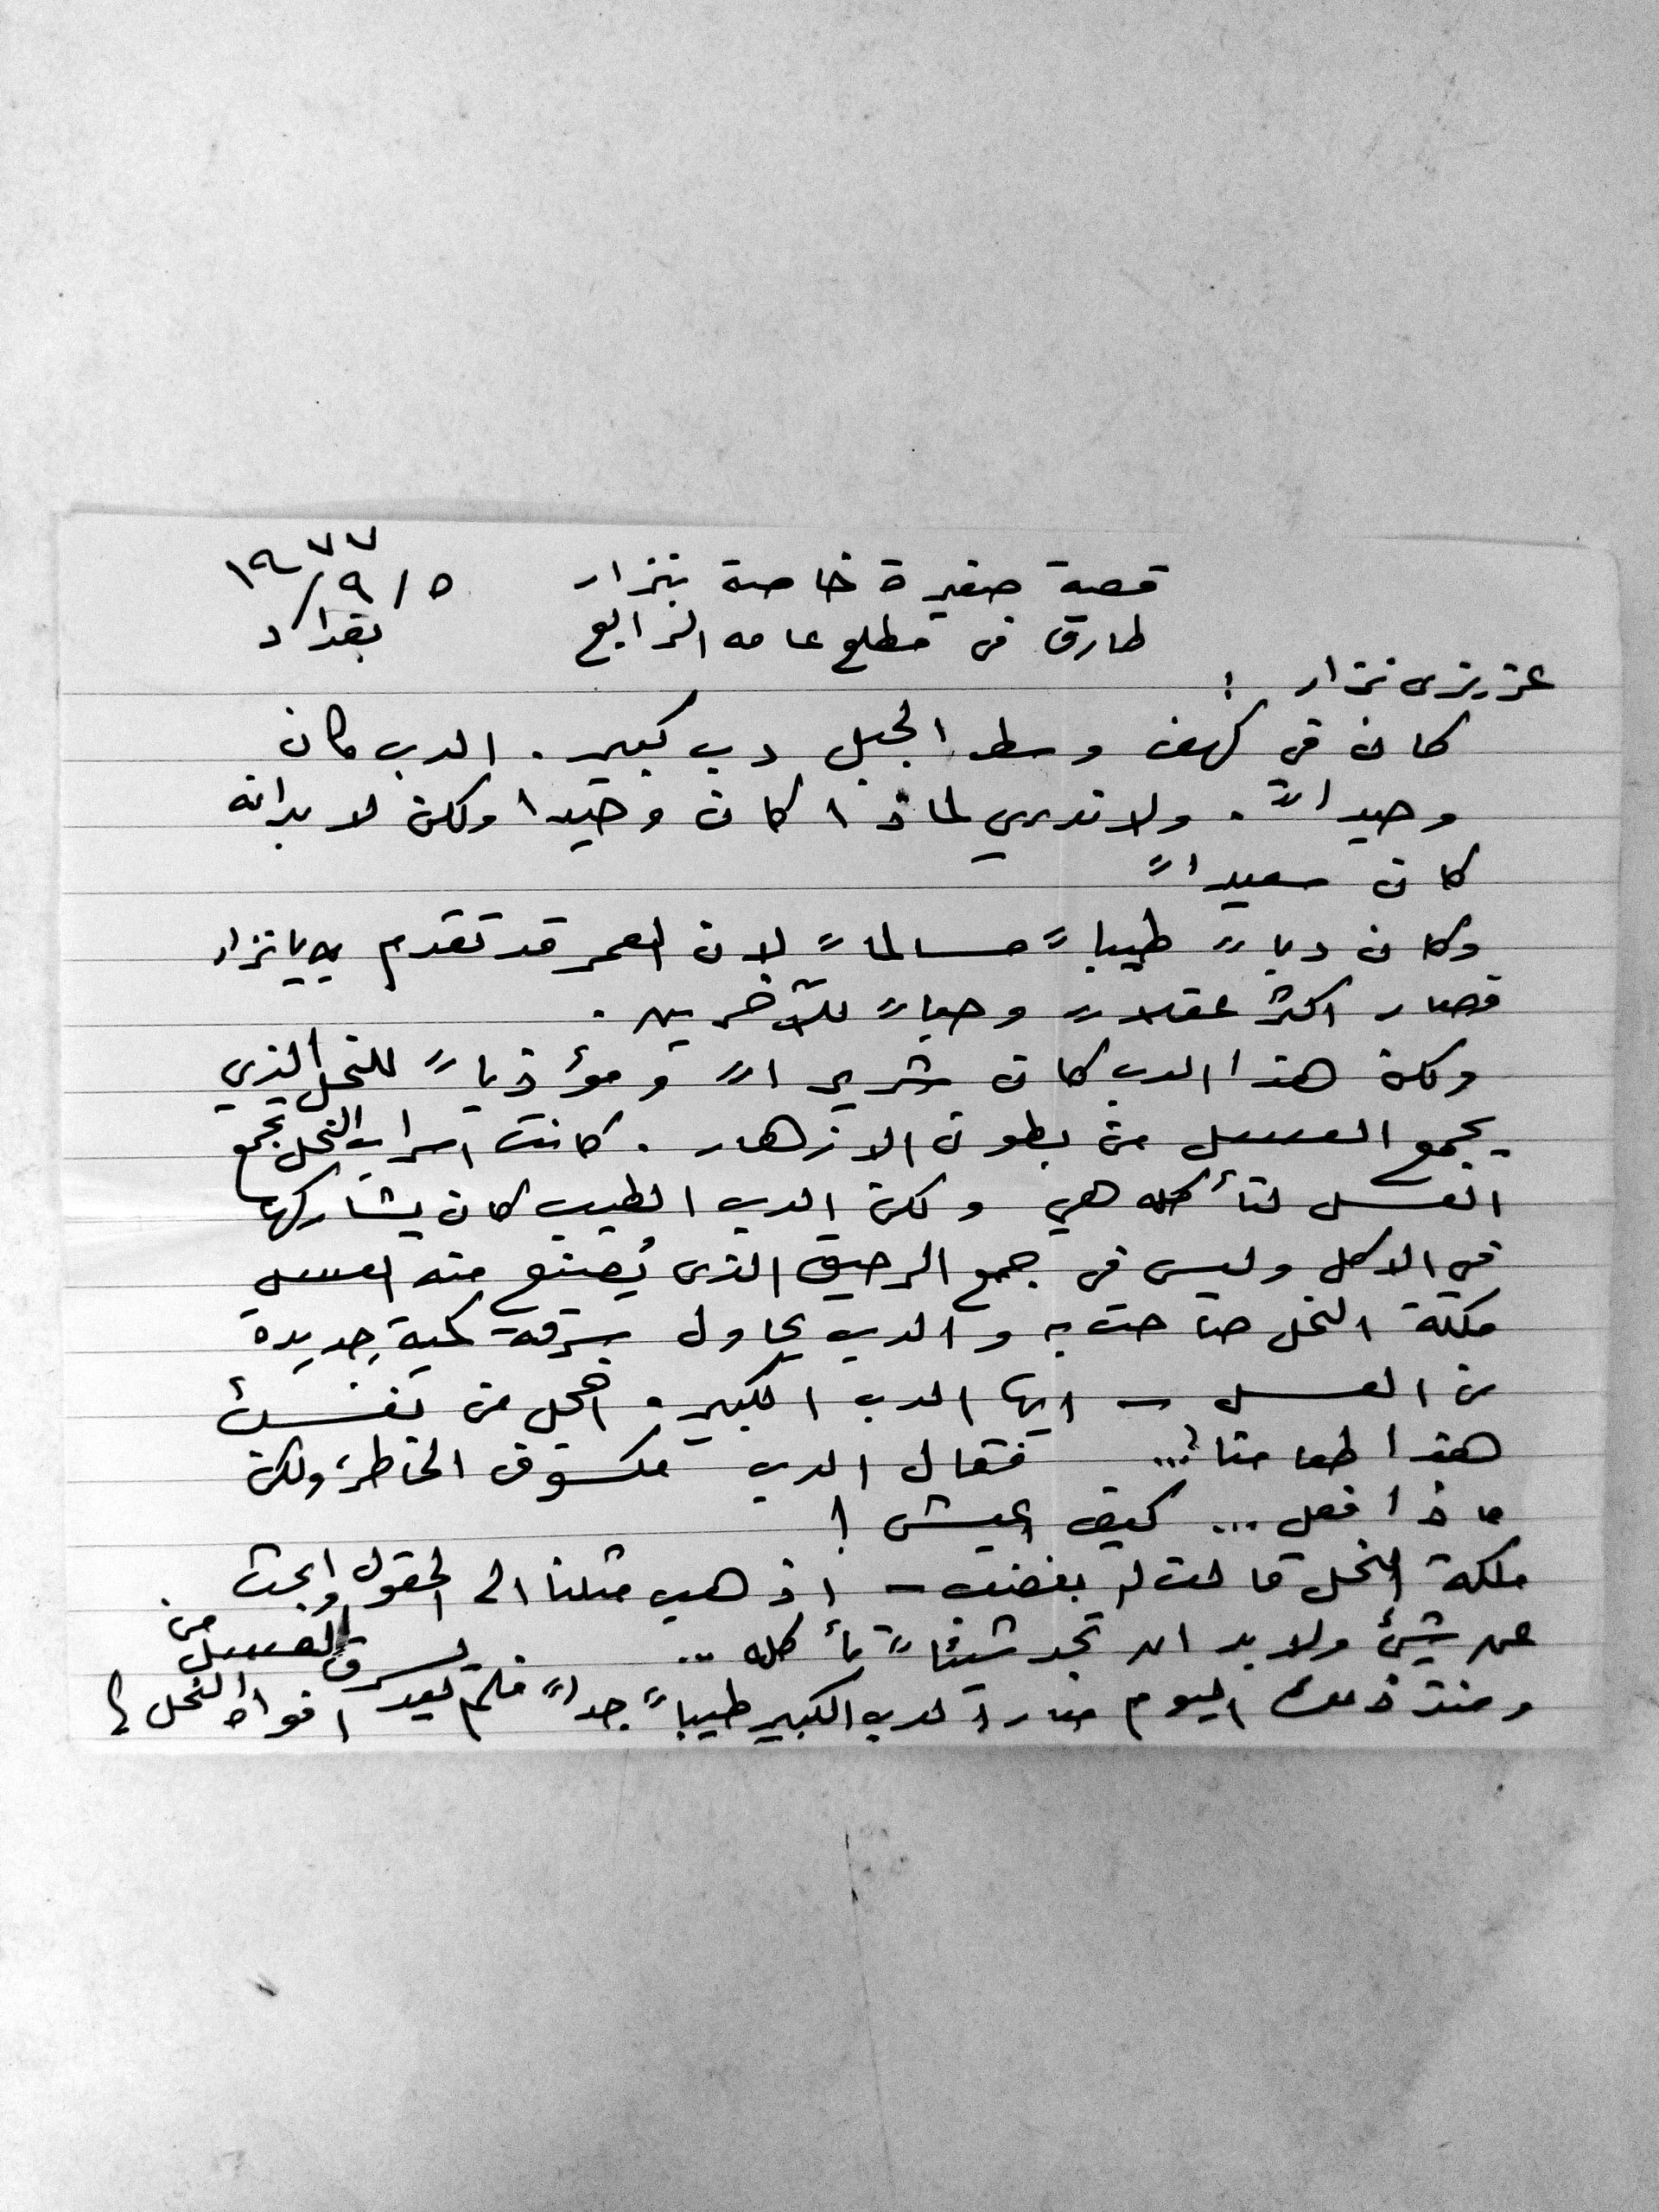 قصة صغيرة خاصة بنزار
طارق في مطلع عامه الرابع
١٩٧٧/٩/٥
بغداد
عزيزي نزار :
كان في كهف وسط الجبل دب كبير . الدب كان
وحيداً . ولا ندري لماذا كان وحيدا ولكن لا بد انه
كان سعيداً
وكان دباً طيباً مسالماً لان العمر قد تقدم به يا نزار
فصار اكثر عقلاً وحباً للآخرين .
ولكن هذا الدب كان شريراً ومؤذياً للنحل الذي
يجمع العسل من بطون الازهار . كانت اسراب النحل تجمع
العسل لتأكله هي ولكن الدب الطيب كان يشاركها
في الاكل وليس في جمع الرحيق الذي يُصنع منه العسل
ملكة النحل صاحت به والدب يحاول سرقة كمية جديدة
من العسل - ايها الدب الكبير . اخجل من نفسك
هذا طعامنا ! ... فقال الدب مكسوف الخاطر ، ولكن
ماذا افعل ... كيف اعيش !
ملكة النحل قالت له بغضب - اذهب مثلنا الى الحقول وابحث
عن شيئ ولا بد ان تجد شيئاً تأكله ..
ومنذ ذلك اليوم صار الدب الكبير طيباً جداً فلم يعد يسرق العسل من
افواه النحل !